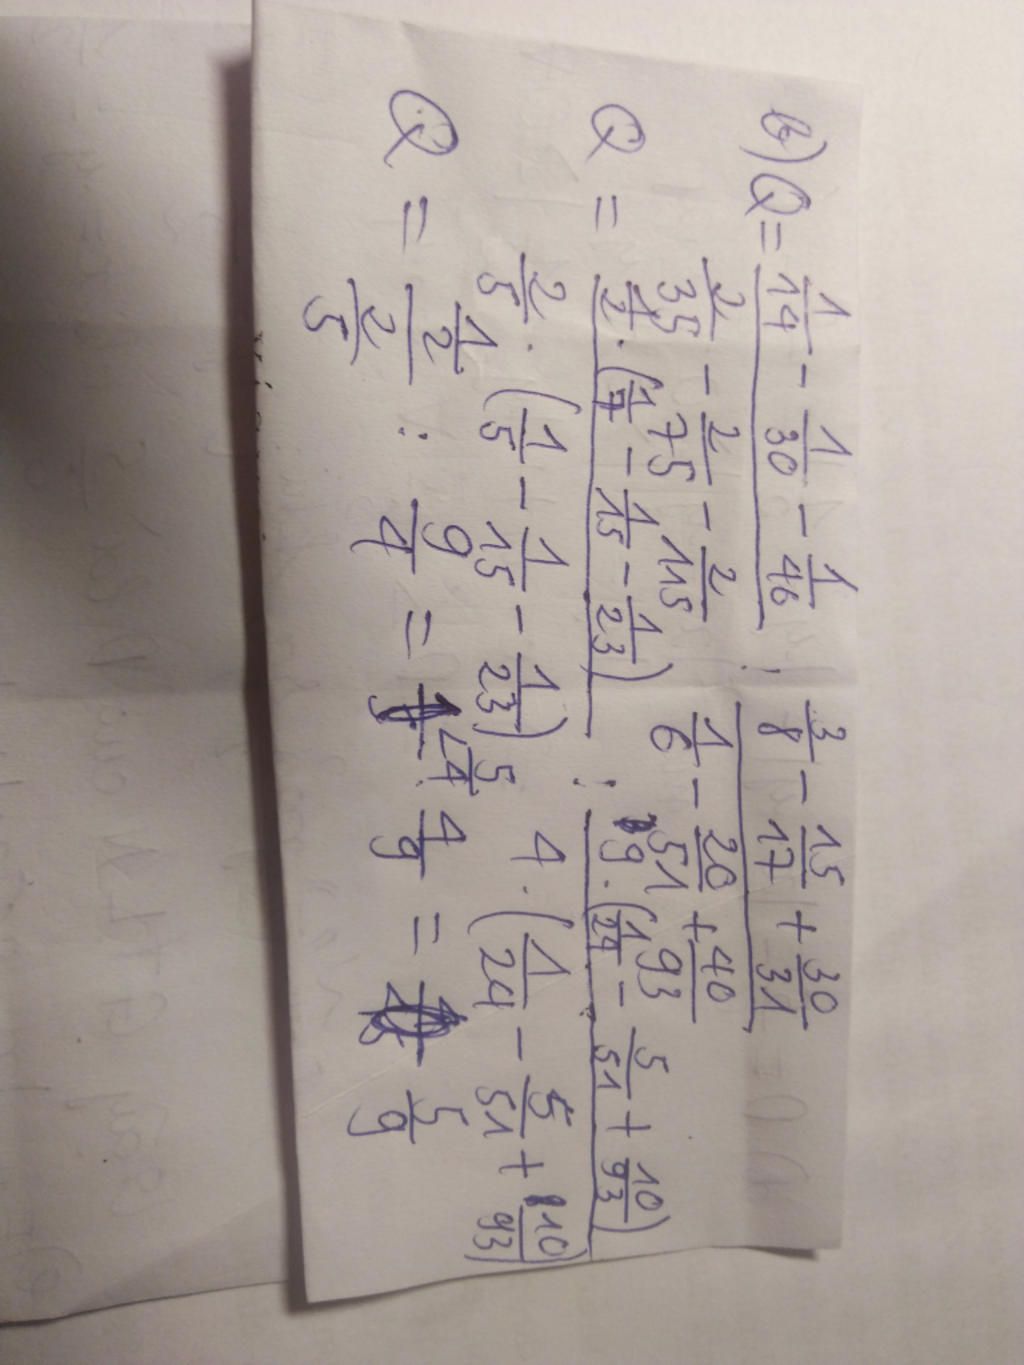 b) Q = (1/14 - 1/30 - 1/46)/(2/35 - 2/75 - 2/115) : (3/8 - 15/17 + 30/31)/(1/6 - 20/51 + 40/93)
Q = (1/2 · (1/7 - 1/15 - 1/23))/(2/5 · (1/5 - 1/15 - 1/23)) : (9 · (1/24 - 5/51 + 10/93))/(4 · (1/24 - 5/51 + 10/93))
Q = (1/2)/(2/5) : 9/4 = 5/4 · 4/9 = 5/9